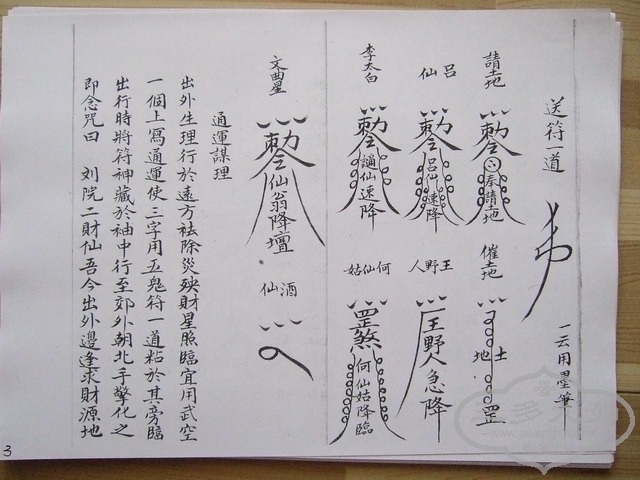 送符一道
一云用墨筆
請土地
勅令
奉請土地
催土地
土地
罡
呂仙
勅令
呂仙速降
王野人
王野人急降
李太白
勅令
謫仙速降
何仙姑
罡煞
何仙姑降臨
文曲星
勅令
仙翁降壇
酒仙
通運謀理
出外生理行於遠方祛除災殃財星照臨宜用武空
一個上寫通運使三字用五鬼符一道粘於其旁臨
出行時將符神藏於袖中行至郊外朝北手擎化之
即念咒曰 刘院二財仙吾今出外邊逢求財源地
3